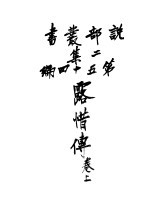 說部叢書
二集
第五十四編
露惜傳
卷上